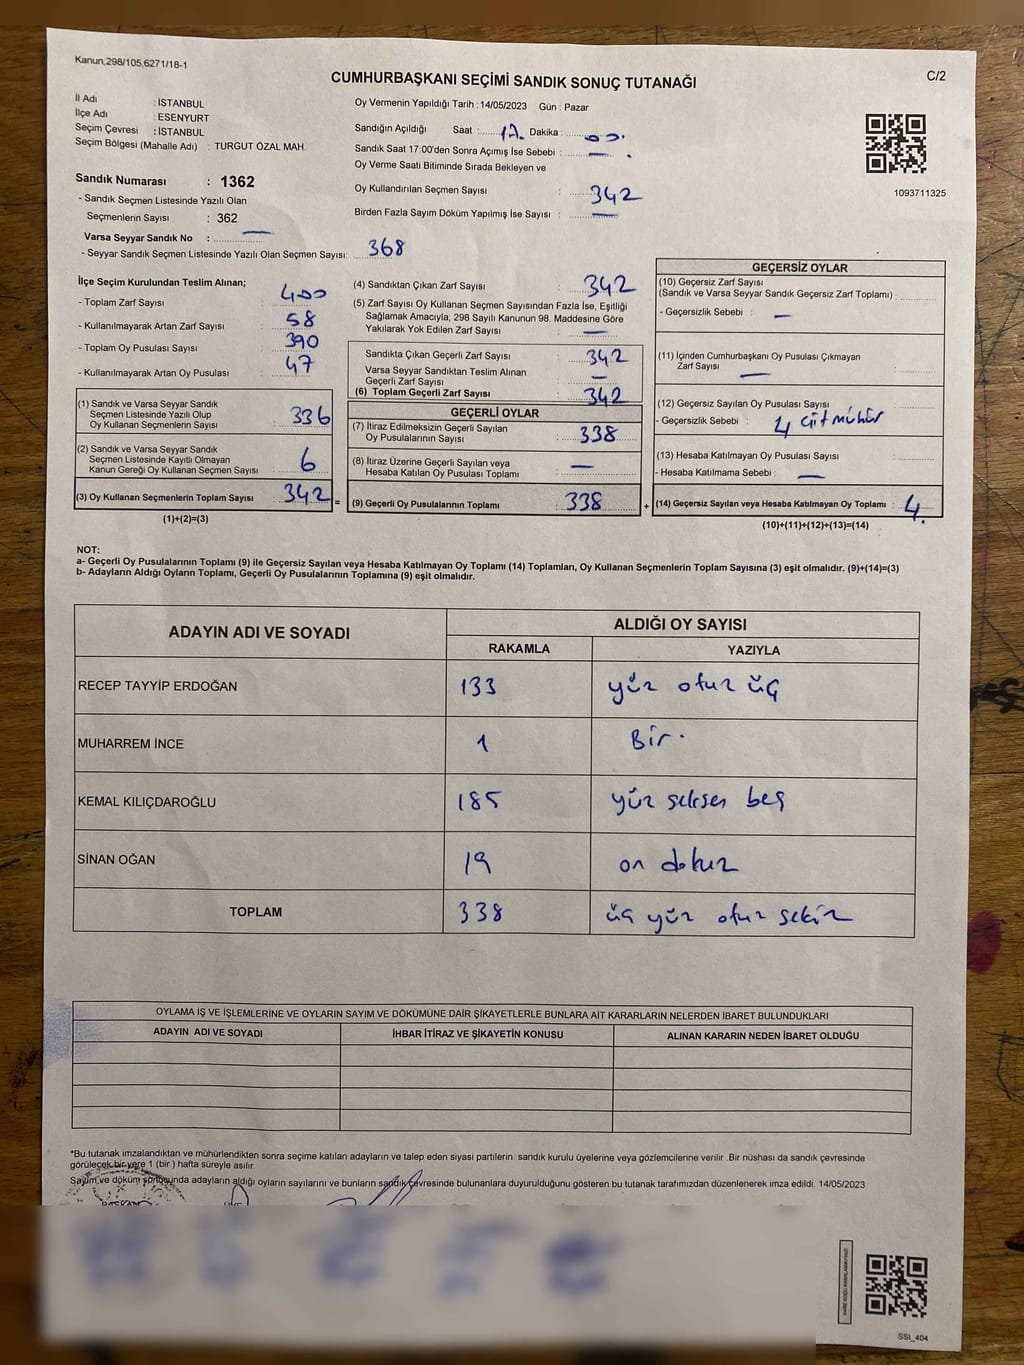 Kanun,298/105,6271/18-1
CUMHURBAŞKANI SEÇİMİ SANDIK SONUÇ TUTANAĞI
C/2
İl Adı : İSTANBUL
İlçe Adı : ESENYURT
Seçim Çevresi : İSTANBUL
Seçim Bölgesi (Mahalle Adı) : TURGUT ÖZAL MAH.
Sandık Numarası : 1362
- Sandık Seçmen Listesinde Yazılı Olan
Seçmenlerin Sayısı : 362
Varsa Seyyar Sandık No :
- Seyyar Sandık Seçmen Listesinde Yazılı Olan Seçmen Sayısı: 368
Oy Vermenin Yapıldığı Tarih : 14/05/2023 Gün : Pazar
Sandığın Açıldığı Saat : 17. Dakika : 00.
Sandık Saat 17:00'den Sonra Açımış İse Sebebi : —
Oy Verme Saati Bitiminde Sırada Bekleyen ve
Oy Kullandırılan Seçmen Sayısı : 342
Birden Fazla Sayım Döküm Yapılmış İse Sayısı : —
1093711325
İlçe Seçim Kurulundan Teslim Alınan;
- Toplam Zarf Sayısı : 400
- Kullanılmayarak Artan Zarf Sayısı : 58
- Toplam Oy Pusulası Sayısı : 390
- Kullanılmayarak Artan Oy Pusulası : 47
(1) Sandık ve Varsa Seyyar Sandık
Seçmen Listesinde Yazılı Olup
Oy Kullanan Seçmenlerin Sayısı : 336
(2) Sandık ve Varsa Seyyar Sandık
Seçmen Listesinde Kayıtlı Olmayan
Kanun Gereği Oy Kullanan Seçmen Sayısı : 6
(3) Oy Kullanan Seçmenlerin Toplam Sayısı : 342 =
(1)+(2)=(3)
(4) Sandıktan Çıkan Zarf Sayısı : 342
(5) Zarf Sayısı Oy Kullanan Seçmen Sayısından Fazla İse, Eşitliği
Sağlamak Amacıyla; 298 Sayılı Kanunun 98. Maddesine Göre
Yakılarak Yok Edilen Zarf Sayısı : —
Sandıkta Çıkan Geçerli Zarf Sayısı : 342
Varsa Seyyar Sandıktan Teslim Alınan
Geçerli Zarf Sayısı : —
(6) Toplam Geçerli Zarf Sayısı : 342
GEÇERLİ OYLAR
(7) İtiraz Edilmeksizin Geçerli Sayılan
Oy Pusulalarının Sayısı : 338
(8) İtiraz Üzerine Geçerli Sayılan veya
Hesaba Katılan Oy Pusulası Toplamı : —
(9) Geçerli Oy Pusulalarının Toplamı : 338 +
GEÇERSİZ OYLAR
(10) Geçersiz Zarf Sayısı
(Sandık ve Varsa Seyyar Sandık Geçersiz Zarf Toplamı) :
- Geçersizlik Sebebi : —
(11) İçinden Cumhurbaşkanı Oy Pusulası Çıkmayan
Zarf Sayısı : —
(12) Geçersiz Sayılan Oy Pusulası Sayısı :
- Geçersizlik Sebebi : 4 çift mühür
(13) Hesaba Katılmayan Oy Pusulası Sayısı :
- Hesaba Katılmama Sebebi : —
(14) Geçersiz Sayılan veya Hesaba Katılmayan Oy Toplamı : 4.
(10)+(11)+(12)+(13)=(14)
NOT:
a- Geçerli Oy Pusulalarının Toplamı (9) ile Geçersiz Sayılan veya Hesaba Katılmayan Oy Toplamı (14) Toplamları, Oy Kullanan Seçmenlerin Toplam Sayısına (3) eşit olmalıdır. (9)+(14)=(3)
b- Adayların Aldığı Oyların Toplamı, Geçerli Oy Pusulalarının Toplamına (9) eşit olmalıdır.
ADAYIN ADI VE SOYADI
ALDIĞI OY SAYISI
RAKAMLA YAZIYLA
RECEP TAYYİP ERDOĞAN 133 yüz otuz üç
MUHARREM İNCE 1 Bir.
KEMAL KILIÇDAROĞLU 185 yüz seksen beş
SİNAN OĞAN 19 on dokuz
TOPLAM 338 üç yüz otuz sekiz
OYLAMA İŞ VE İŞLEMLERİNE VE OYLARIN SAYIM VE DÖKÜMÜNE DAİR ŞİKAYETLERLE BUNLARA AİT KARARLARIN NELERDEN İBARET BULUNDUKLARI
ADAYIN ADI VE SOYADI İHBAR İTİRAZ VE ŞİKAYETİN KONUSU ALINAN KARARIN NEDEN İBARET OLDUĞU
*Bu tutanak imzalandıktan ve mühürlendikten sonra seçime katılan adayların ve talep eden siyasi partilerin sandık kurulu üyelerine veya gözlemcilerine verilir. Bir nüshası da sandık çevresinde
görülecek bir yere 1 (bir) hafta süreyle asılır.
Sayım ve döküm sonucunda adayların aldığı oyların sayılarını ve bunların sandık çevresinde bulunanlara duyurulduğunu gösteren bu tutanak tarafımızdan düzenlenerek imza edildi. 14/05/2023
BAŞKAN
SSI_404